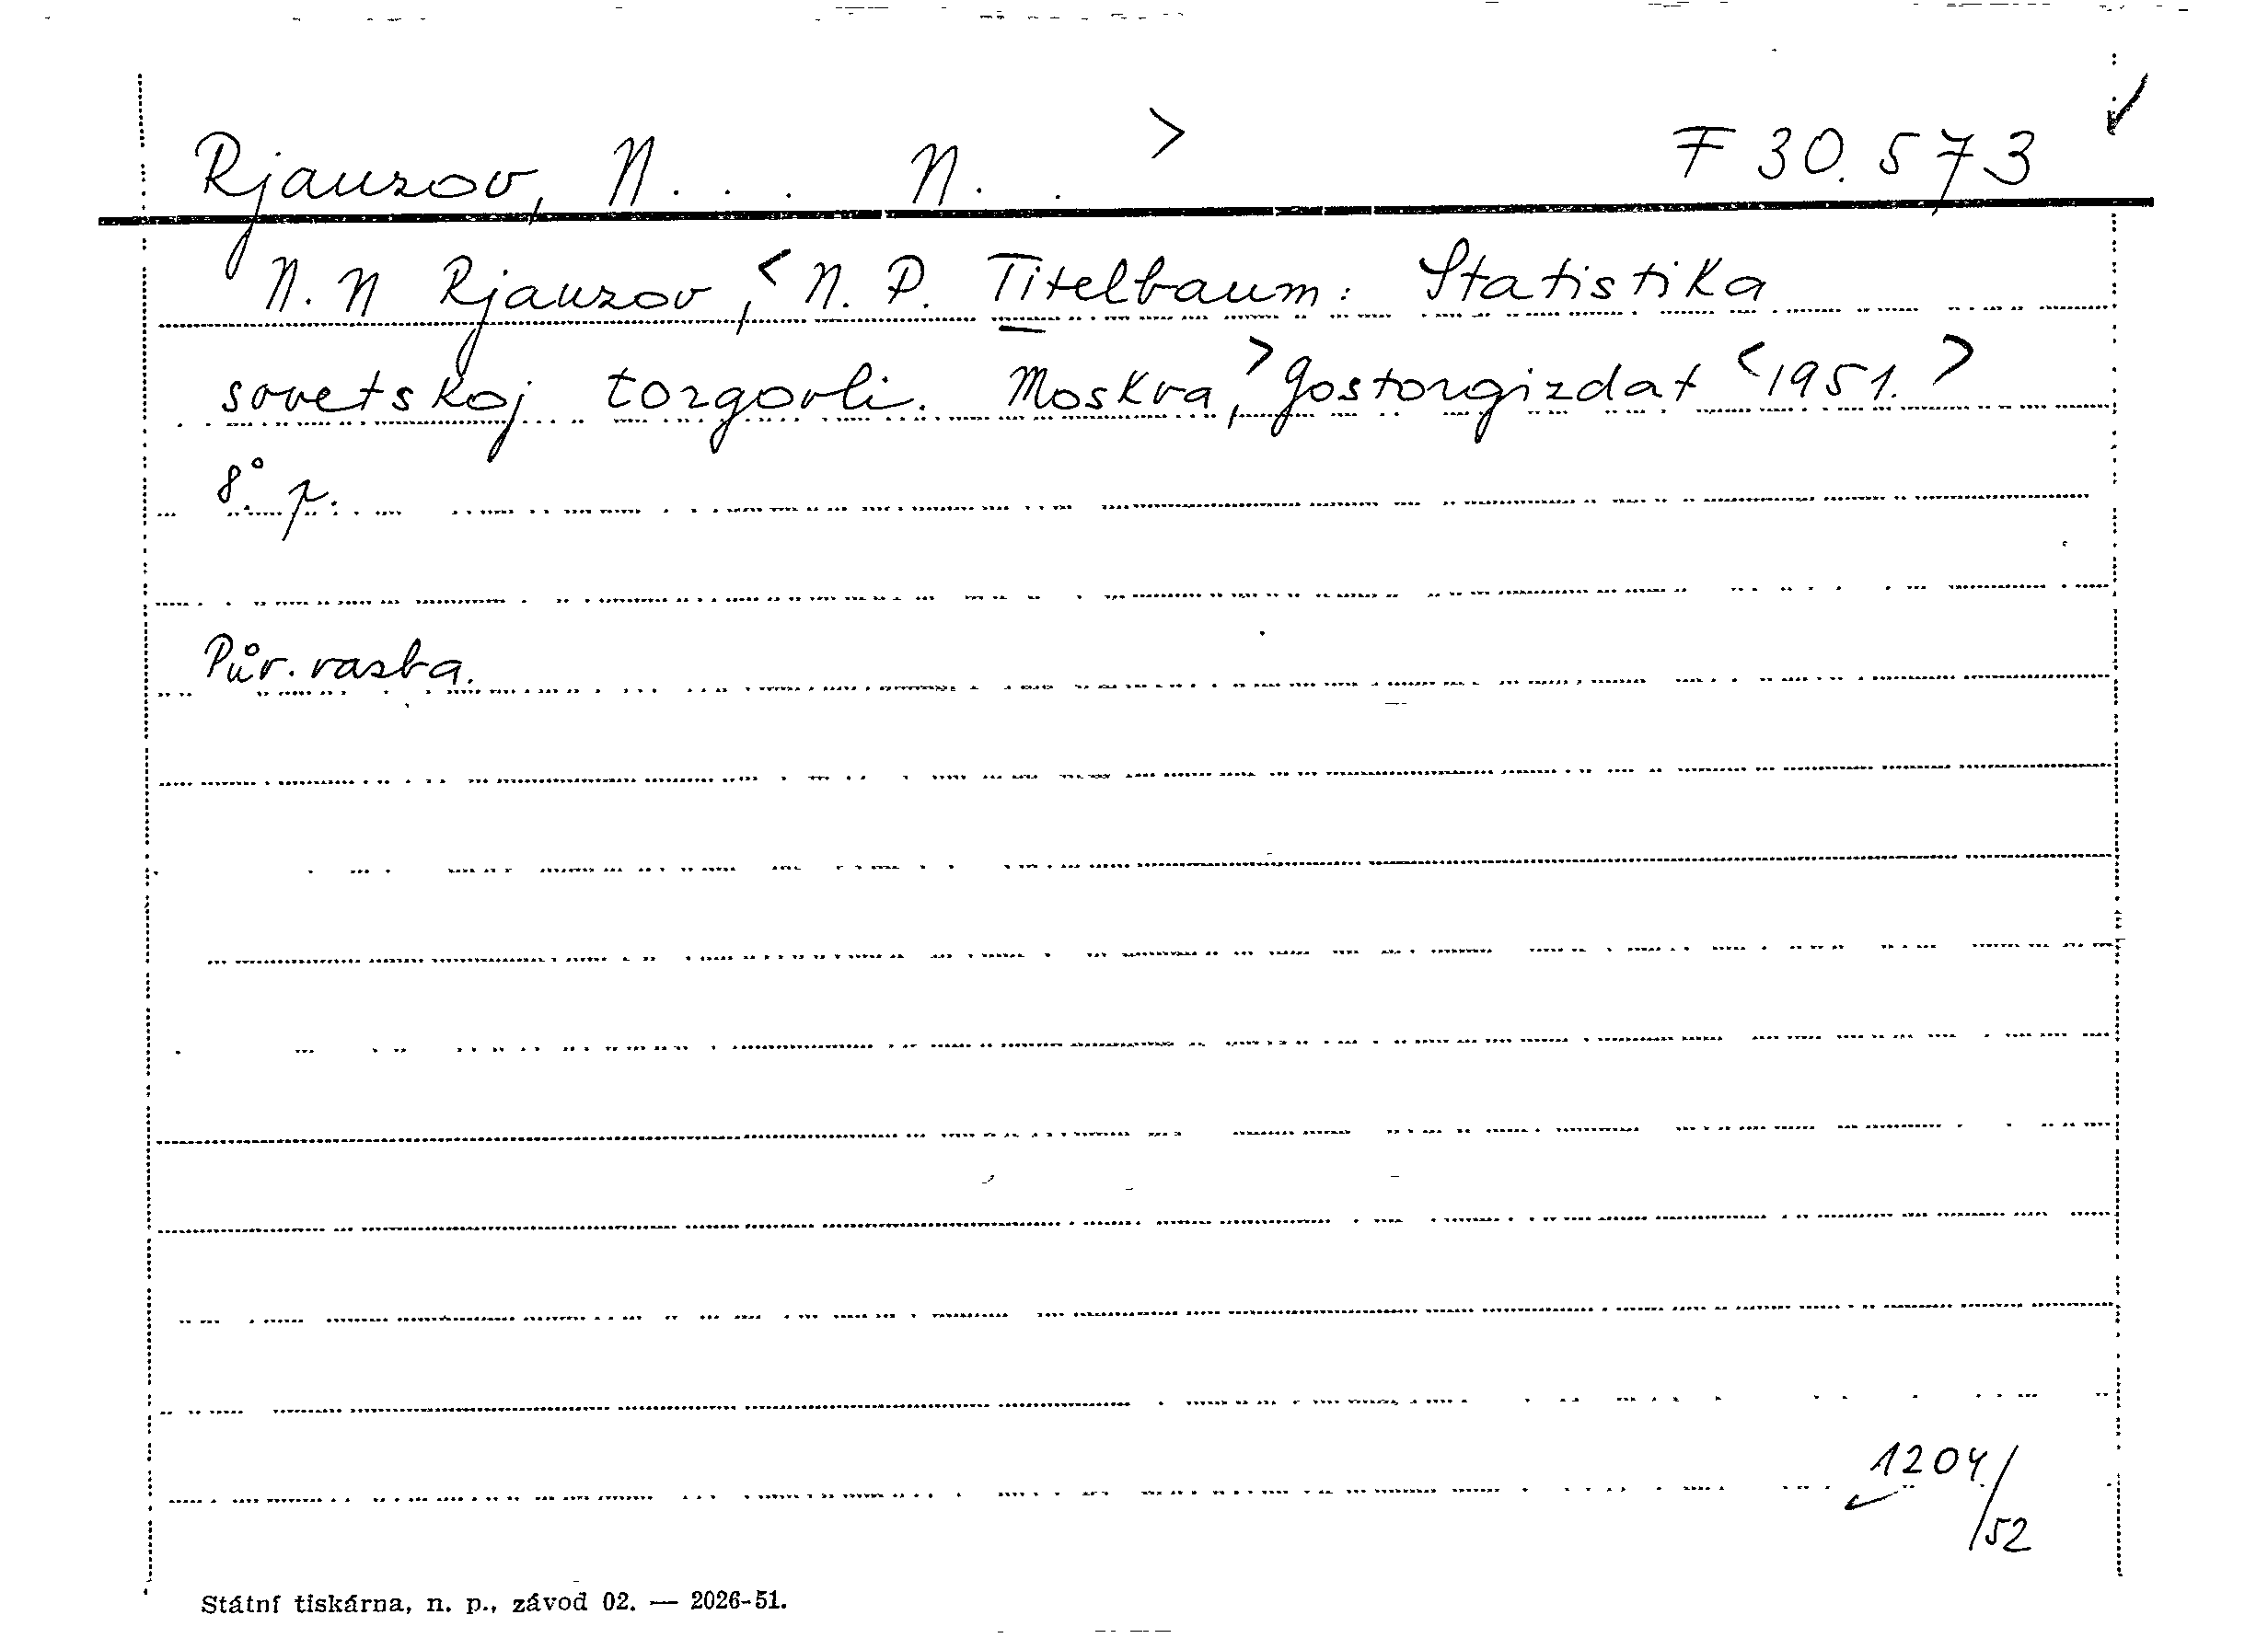 Rjauzov, N. . . N. . > F 30.573
N. N Rjauzov, < N. P. Titelbaum: Statistika
sovetskoj torgovli. Moskva, > Gostorgizdat < 1951. >
8° p.
Pův. vazba.
1204/52
Státní tiskárna, n. p., závod 02. — 2026-51.